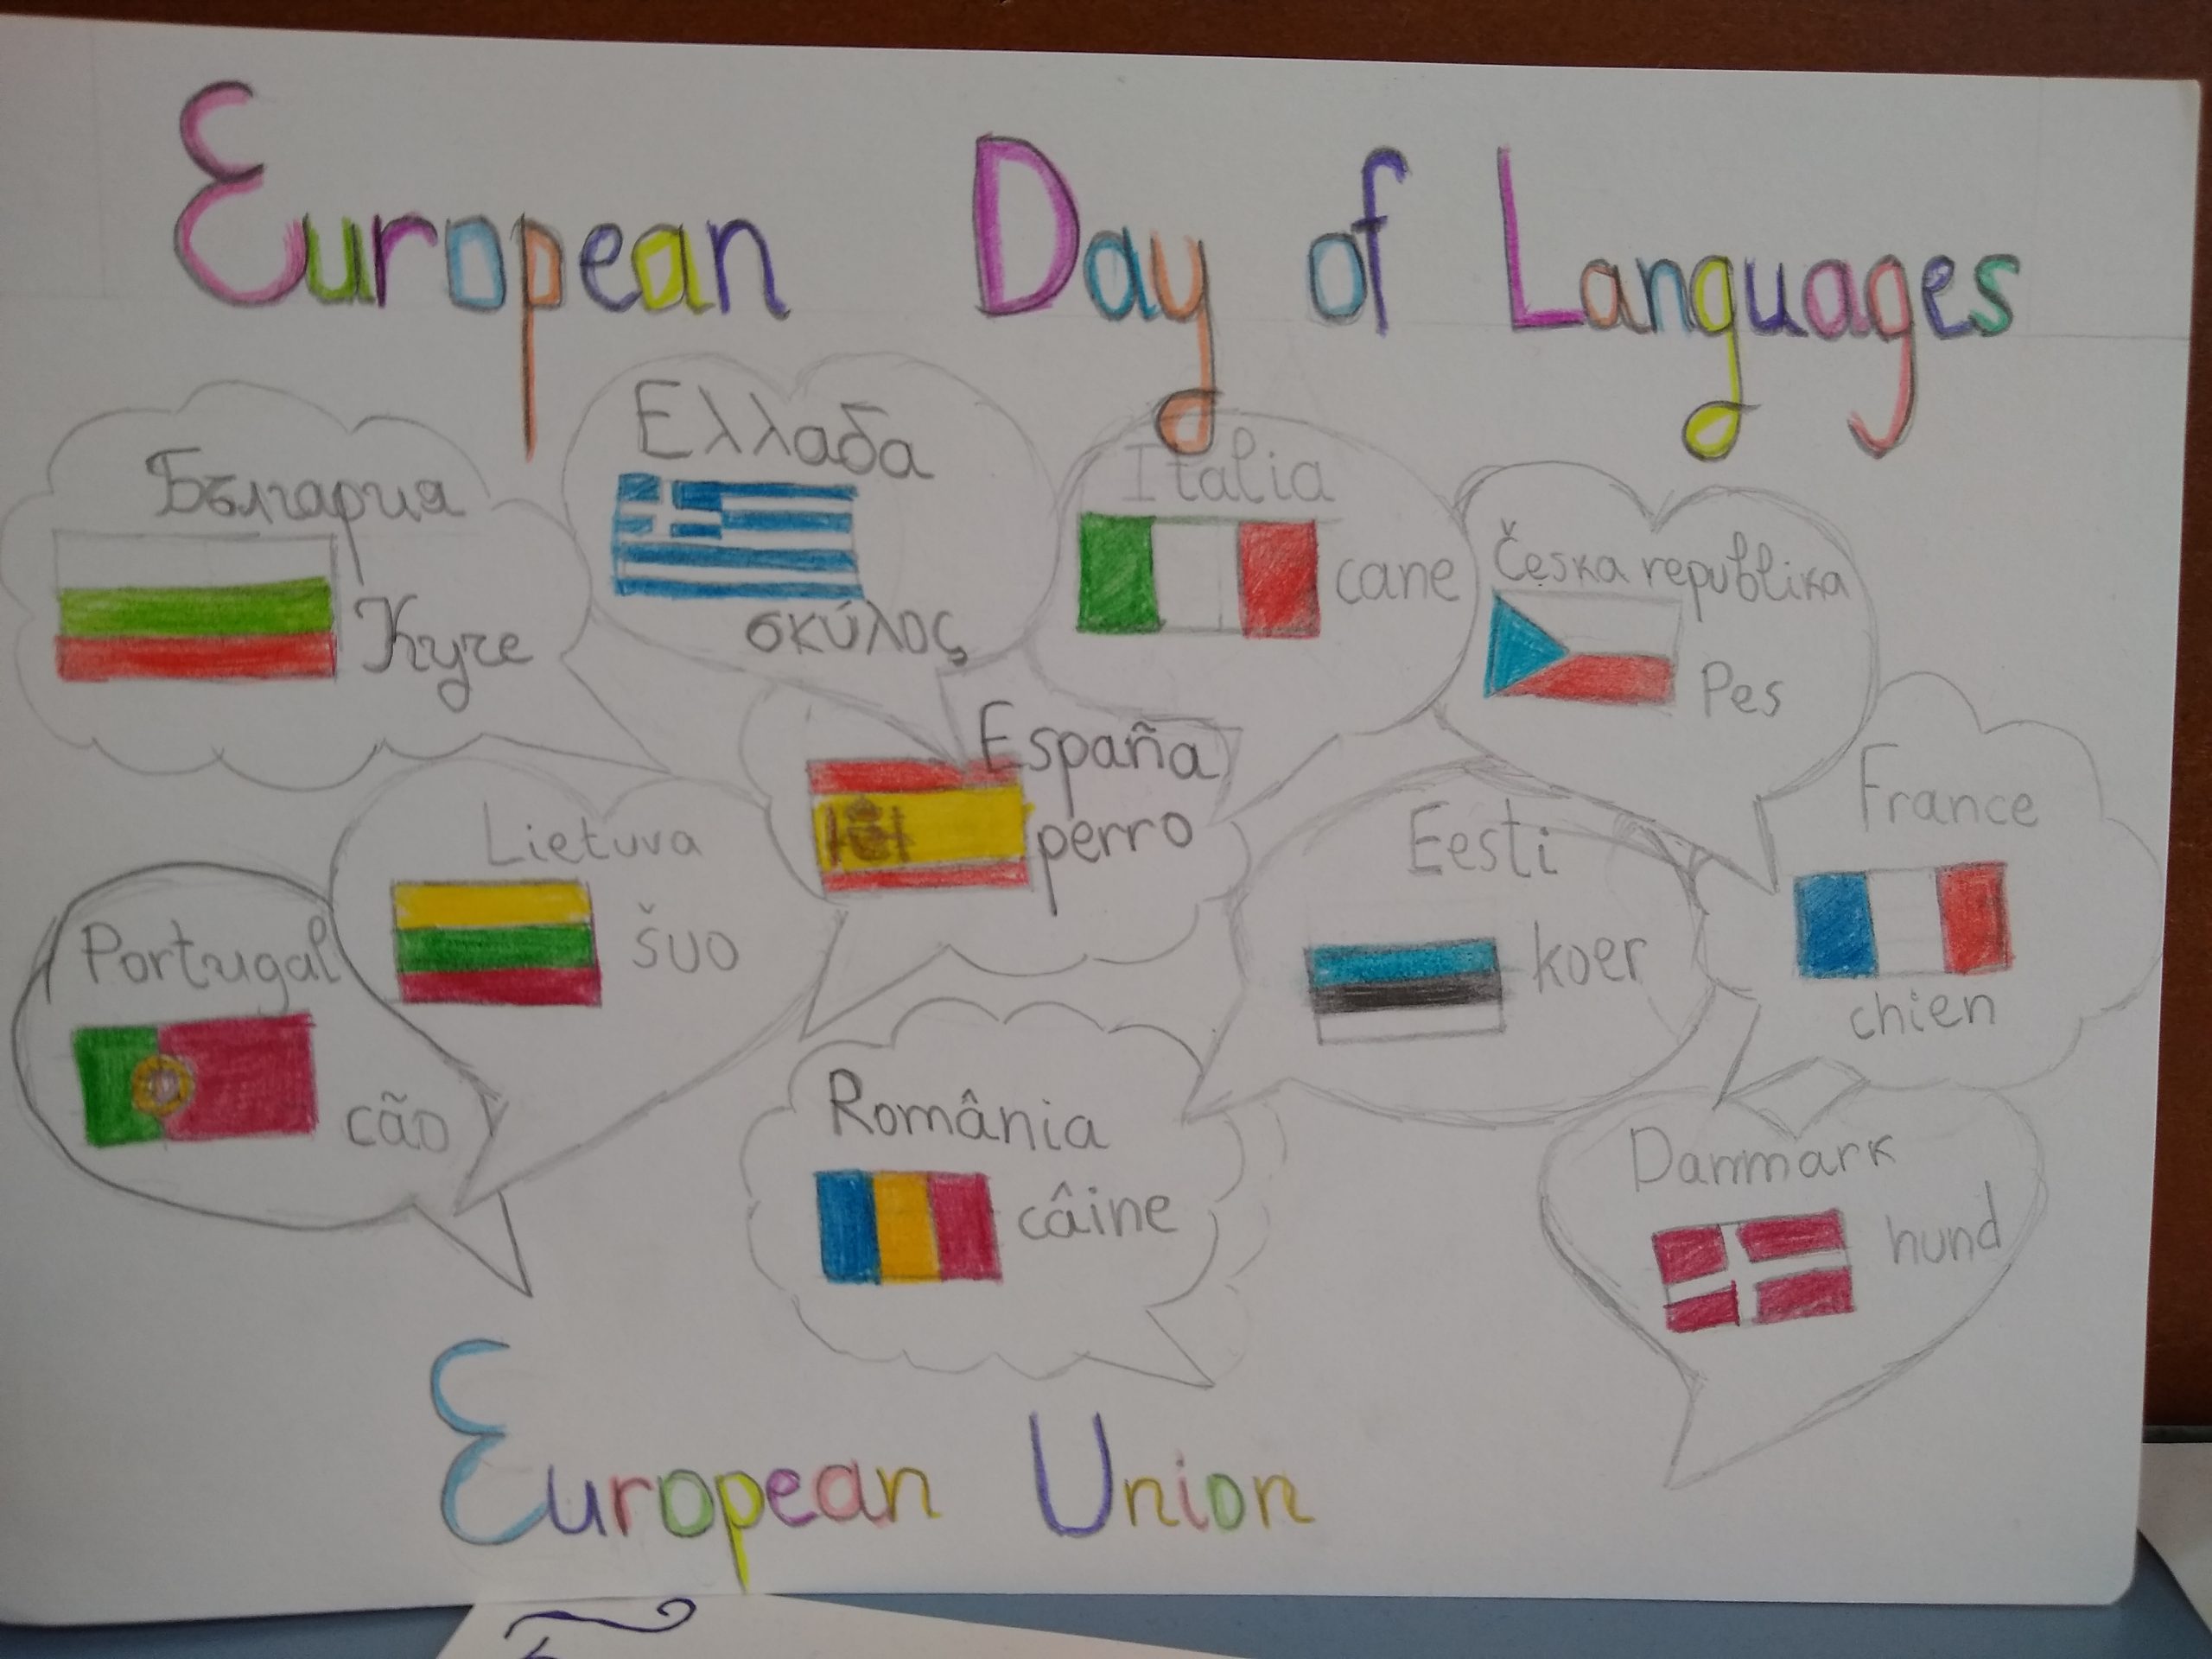 European Day of Languages
България
Куче
Ελλαδα
σκύλος
Italia
cane
Česka republika
Pes
España
perro
Lietuva
šuo
Portugal
cão
Eesti
koer
France
chien
România
câine
Danmark
hund
European Union